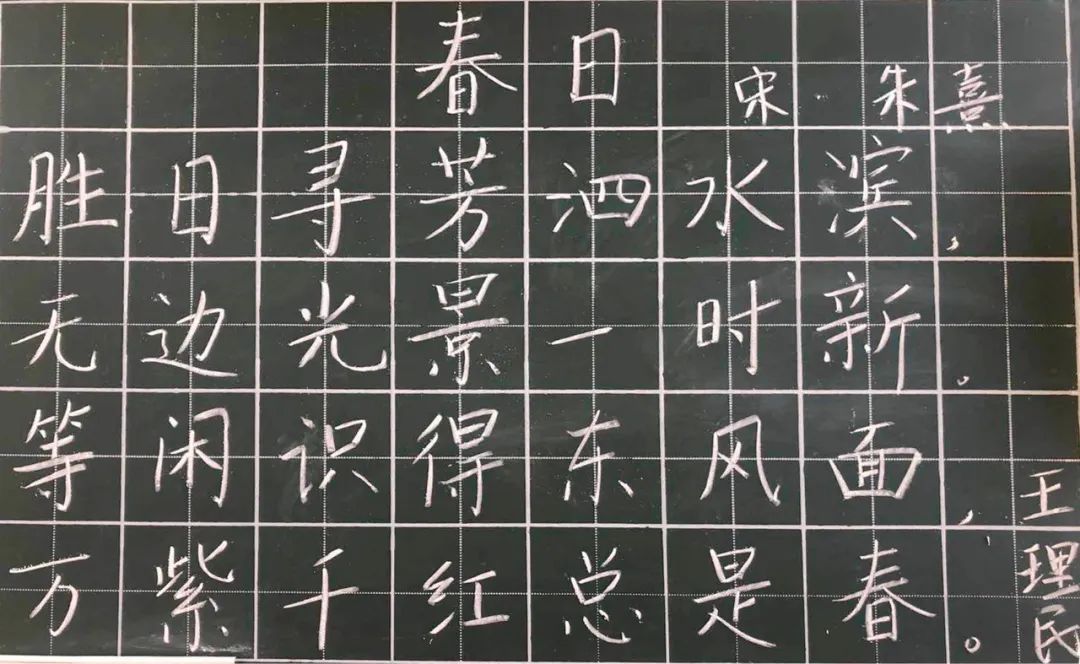 春日
宋 朱熹
胜日寻芳泗水滨，
无边光景一时新。
等闲识得东风面，
万紫千红总是春。
王理民